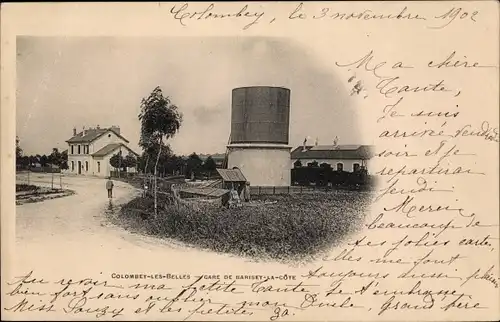 Colombey, le 3 novembre 1902
Ma chère
Tante,
Je suis
arrivée vendredi
soir et je
repartirai
jeudi
Merci
beaucoup de
tes jolies cartes
elles me font
toujours aussi plaisir
COLOMBEY-LES-BELLES GARE DE BARISEY-LA-CÔTE
Au revoir ma petite Tante je t'embrasse
bien fort sans oublier mon Oncle, Grand père
Miss et les petites